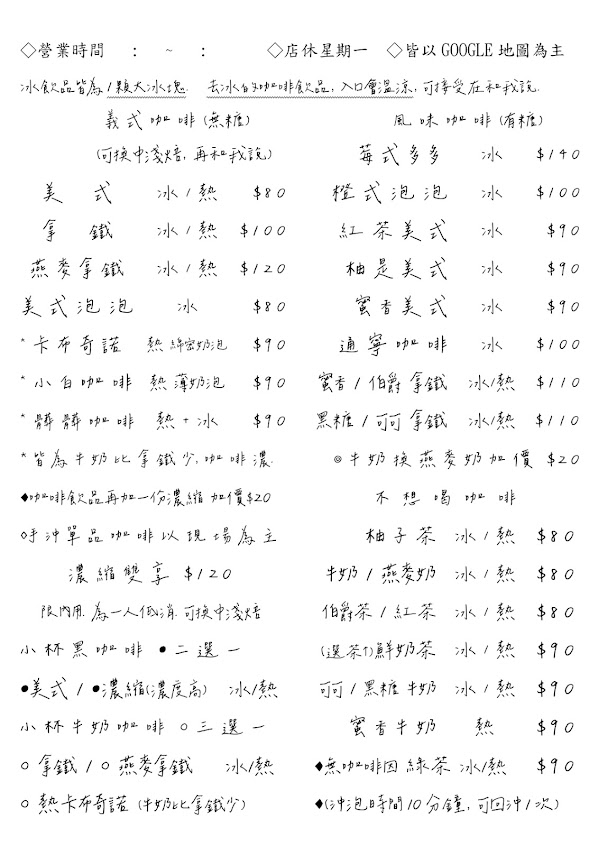 ◇營業時間　：　~　：　◇店休星期一　◇皆以 GOOGLE 地圖為主
冰飲品皆為1顆大冰塊.　去冰的咖啡飲品,入口會溫涼,可接受在和我說.
義式咖啡(無糖)
(可換中淺焙,再和我說)
美式　冰/熱　$80
拿鐵　冰/熱　$100
燕麥拿鐵　冰/熱　$120
美式泡泡　冰　$80
*卡布奇諾　熱 綿密奶泡　$90
*小白咖啡　熱 薄奶泡　$90
*髒髒咖啡　熱+冰　$90
*皆為牛奶比拿鐵少,咖啡濃.
◆咖啡飲品再加一份濃縮 加價$20
◇手沖單品咖啡以現場為主
濃縮雙享 $120
限內用.為一人低消.可換中淺焙
小杯黑咖啡 ●二選一
●美式/●濃縮(濃度高)　冰/熱
小杯牛奶咖啡 ○三選一
○ 拿鐵/○ 燕麥拿鐵　冰/熱
○ 熱卡布奇諾 (牛奶比拿鐵少)
風味咖啡(有糖)
莓式多多　冰　$140
橙式泡泡　冰　$100
紅茶美式　冰　$90
柚是美式　冰　$90
蜜香美式　冰　$90
通寧咖啡　冰　$100
蜜香/伯爵拿鐵　冰/熱　$110
黑糖/可可拿鐵　冰/熱　$110
◎牛奶換燕麥奶加價 $20
不想喝咖啡
柚子茶　冰/熱　$80
牛奶/燕麥奶　冰/熱　$80
伯爵茶/紅茶　冰/熱　$80
(選茶↑)鮮奶茶　冰/熱　$90
可可/黑糖牛奶　冰/熱　$90
蜜香牛奶　熱　$90
◆無咖啡因綠茶 冰/熱　$90
◆(沖泡時間10分鐘,可回沖1次)